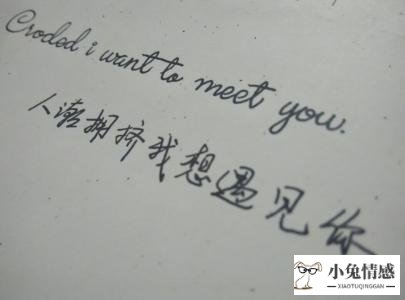 Croded i want to meet you.
人潮拥挤我想遇见你
小兔情感
XIAOTUQINGGAN